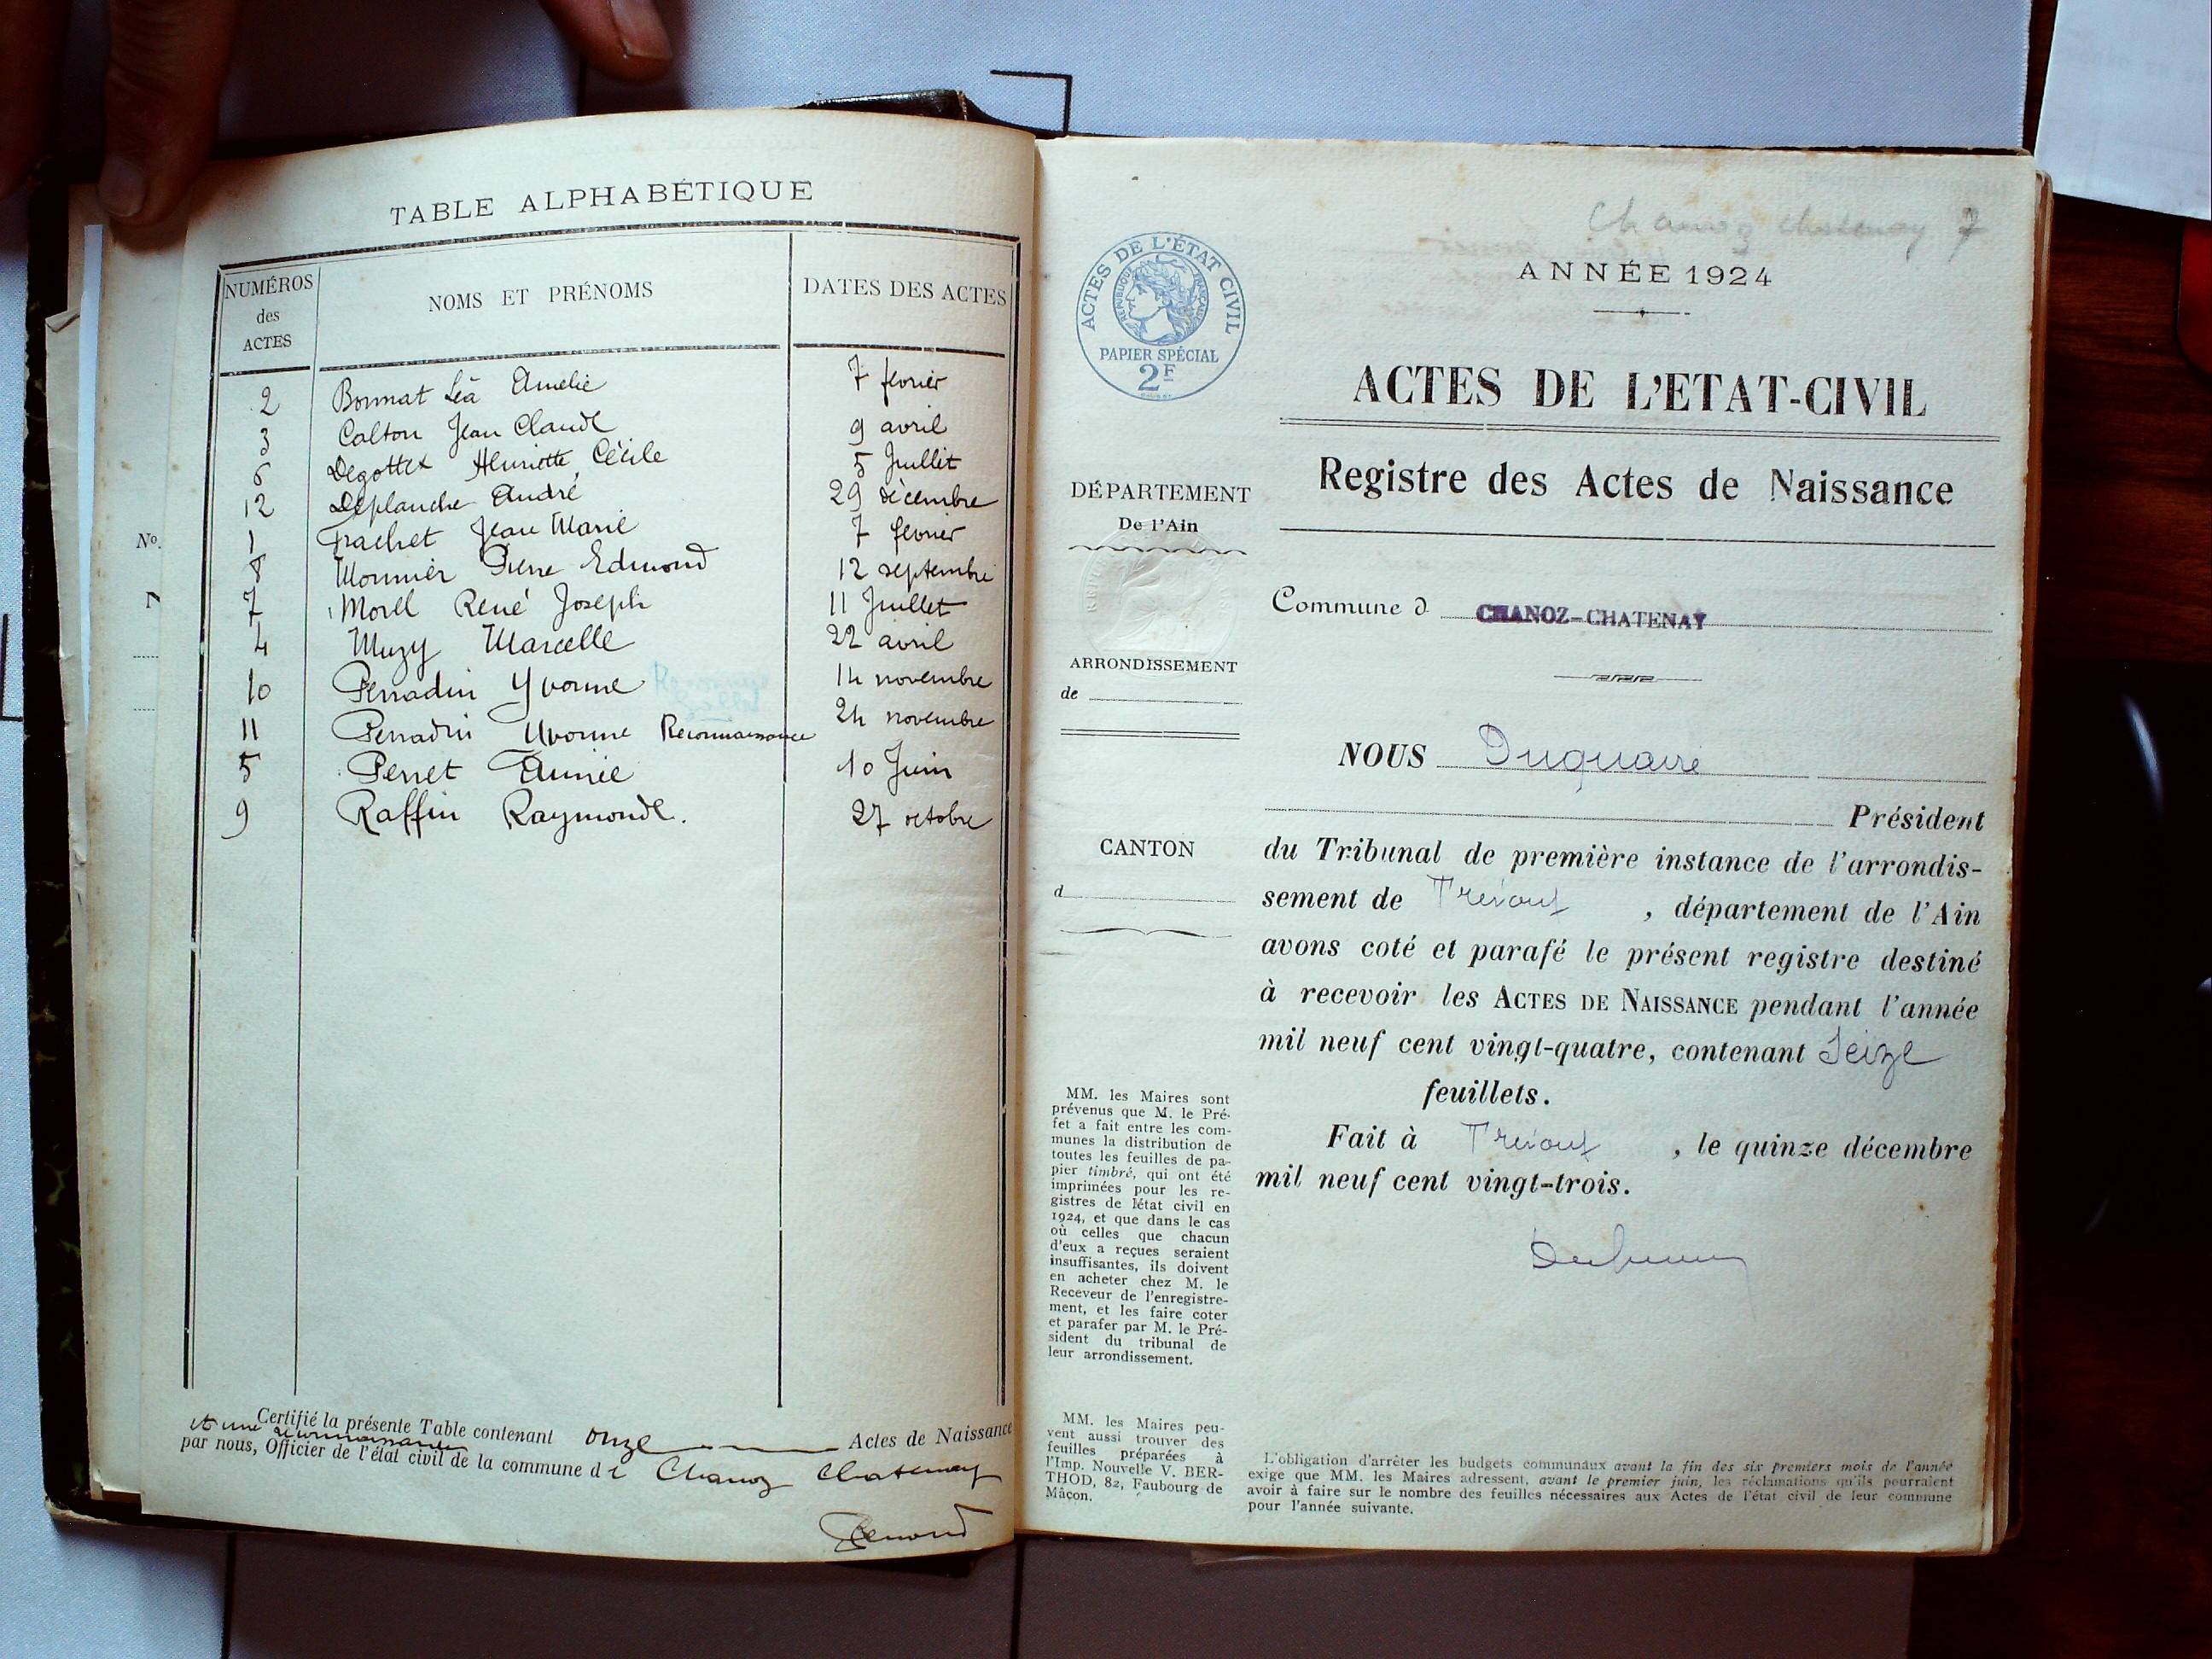 TABLE ALPHABÉTIQUE
NUMÉROS
des
ACTES
NOMS ET PRÉNOMS
DATES DES ACTES
2 Bonnat Léa Amelie 7 fevrier
3 Calton Jean Claude 9 avril
6 Degottex Henriette Cécile 5 Juillet
12 Deplanche André 29 décembre
1 Jean Marie 7 fevrier
8 Monnier Pierre Edmond 12 septembre
7 Morel René Joseph 11 Juillet
4 Muzy Marcelle 22 avril
10 Perradin Yvonne 14 novembre
11 Perradin Yvonne Reconnaissance 24 novembre
5 Perret Aimée 10 Juin
9 Raffin Raymonde. 27 octobre
Certifié la présente Table contenant onze Actes de Naissance
et une reconnaissance
par nous, Officier de l'état civil de la commune de Chanoz Chatenay
No.
Chanoz chatenay 7
ANNÉE 1924
ACTES DE L'ÉTAT CIVIL
RÉPUBLIQUE FRANÇAISE
PAPIER SPÉCIAL
2F
ACTES DE L'ETAT-CIVIL
Registre des Actes de Naissance
DÉPARTEMENT
De l'Ain
Commune d CHANOZ-CHATENAY
ARRONDISSEMENT
de
CANTON
d
NOUS Duquaire
Président
du Tribunal de première instance de l'arrondis-
sement de Trévoux, département de l'Ain
avons coté et parafé le présent registre destiné
à recevoir les ACTES DE NAISSANCE pendant l'année
mil neuf cent vingt-quatre, contenant Seize
feuillets.
Fait à Trévoux, le quinze décembre
mil neuf cent vingt-trois.
MM. les Maires sont
prévenus que M. le Pré-
fet a fait entre les com-
munes la distribution de
toutes les feuilles de pa-
pier timbré, qui ont été
imprimées pour les re-
gistres de létat civil en
1924, et que dans le cas
où celles que chacun
d'eux a reçues seraient
insuffisantes, ils doivent
en acheter chez M. le
Receveur de l'enregistre-
ment, et les faire coter
et parafer par M. le Pré-
sident du tribunal de
leur arrondissement.
MM. les Maires peu-
vent aussi trouver des
feuilles préparées à
l'Imp. Nouvelle V. BER-
THOD, 82, Faubourg de
Mâcon.
L'obligation d'arrêter les budgets communaux avant la fin des six premiers mois de l'année
exige que MM. les Maires adressent, avant le premier juin, les réclamations qu'ils pourraient
avoir à faire sur le nombre des feuilles nécessaires aux Actes de l'état civil de leur commune
pour l'année suivante.